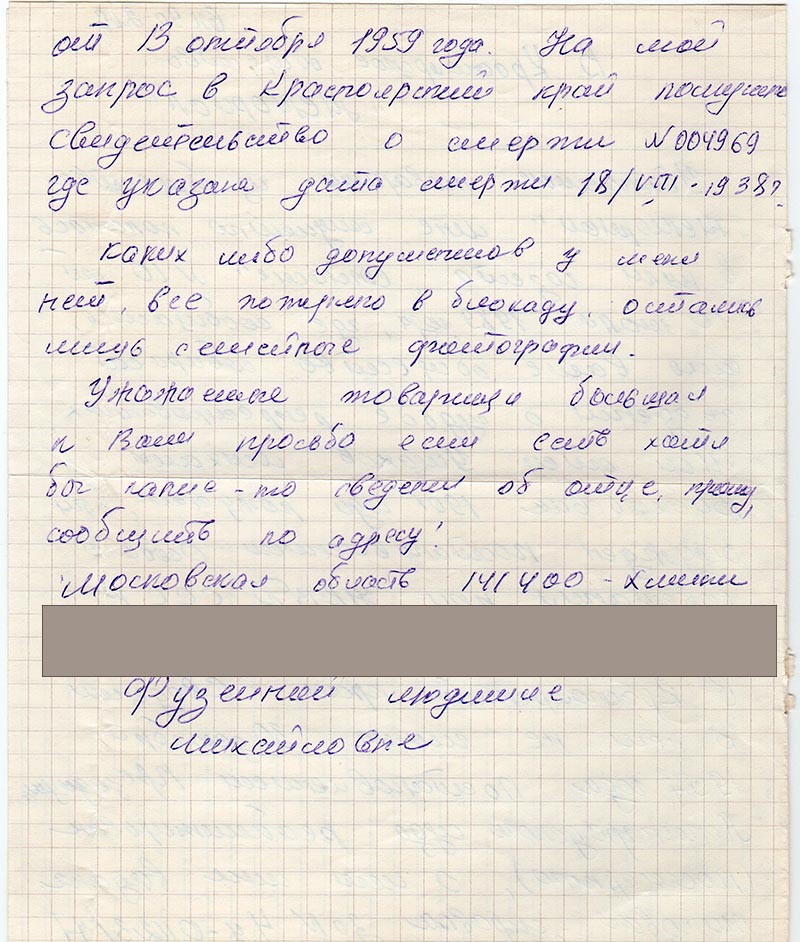 от 13 октября 1959 года. На мой
запрос в Красноярский край получила
свидетельство о смерти N 004969
где указана дата смерти 18/VIII - 1938г.
каких либо документов у меня
нет, все потеряно в блокаду. остались
лишь семейные фотографии.
Уважаемые товарищи большая
к Вам просьба если есть хотя
бы какие-то сведения об отце, прошу,
сообщить по адресу!
Московская область 141400 - Химки
Фузейной Людмиле
Михайловне